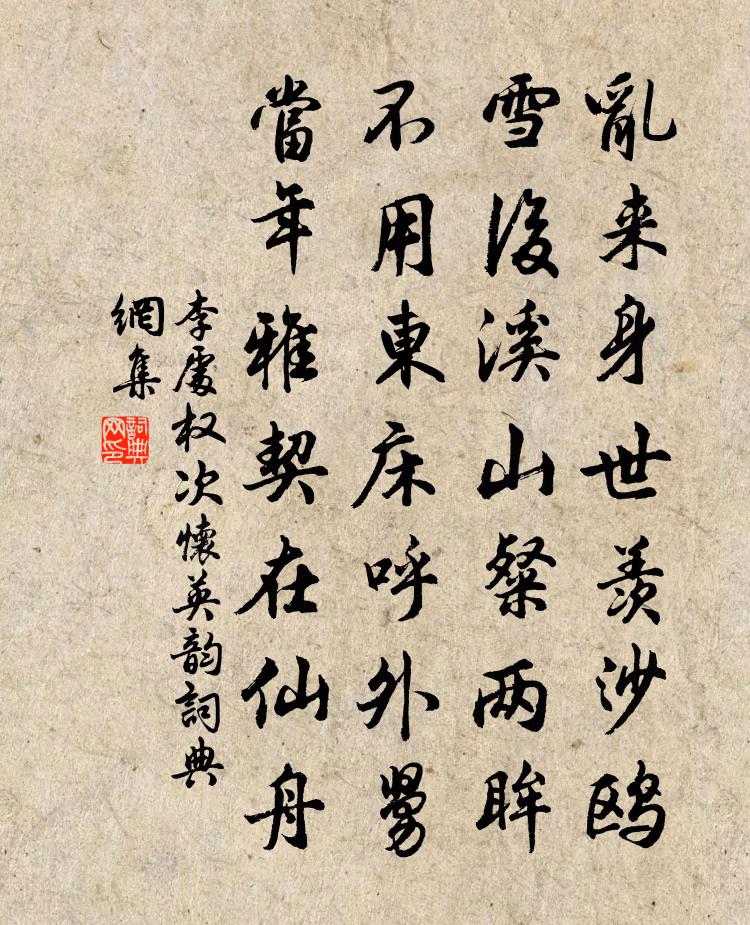 亂来身世羨沙鸥
雪後溪山粲两眸
不用東床呼外舅
當年雅契在仙舟
李處权次懷英韵詞典
網集
詞典
网印